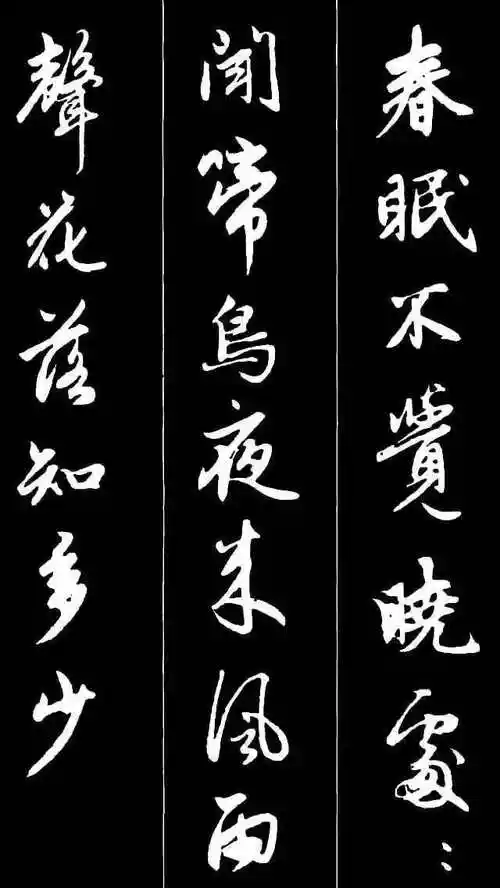 春眠不覺曉處〻
聞啼鳥夜来風雨
聲花落知多少